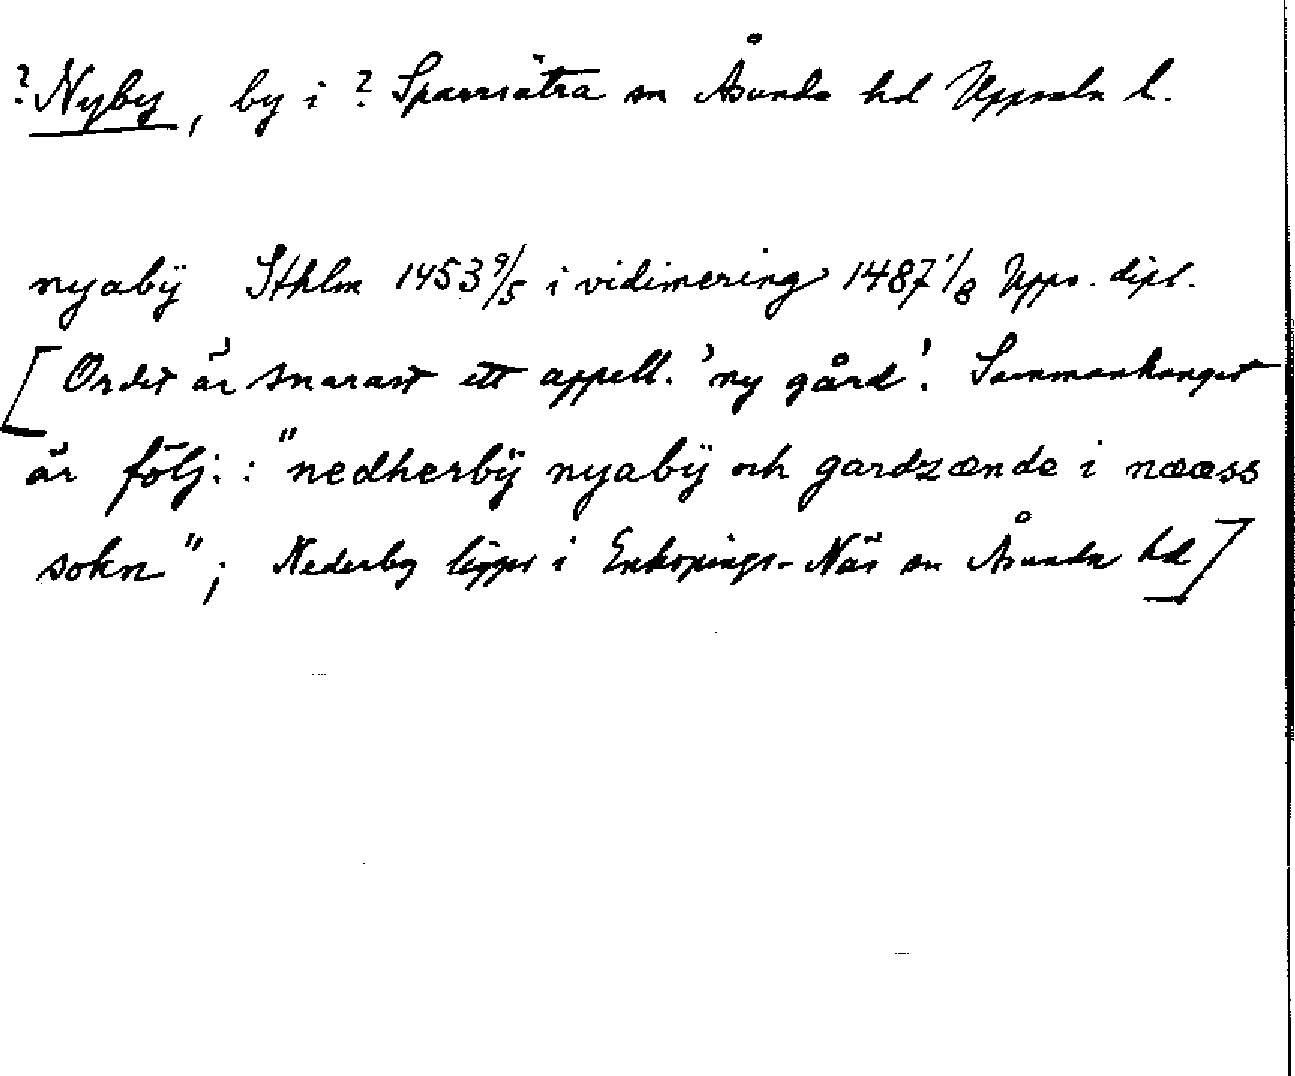 ? Nyby, by i ? Sparrsätra sn Åsunda hd Uppsala l.
nyabÿ Sthlm 1453 9/5 i vidimering 1487 1/8 Upps. dipl.
[Ordet är snarast ett appell. 'ny gård'. Sammanhanget
är följ.: "nedherbÿ nyabÿ och gardzænde i nææss
sokn"; Nederby ligger i Enköpings-Näs sn Åsunda hd]